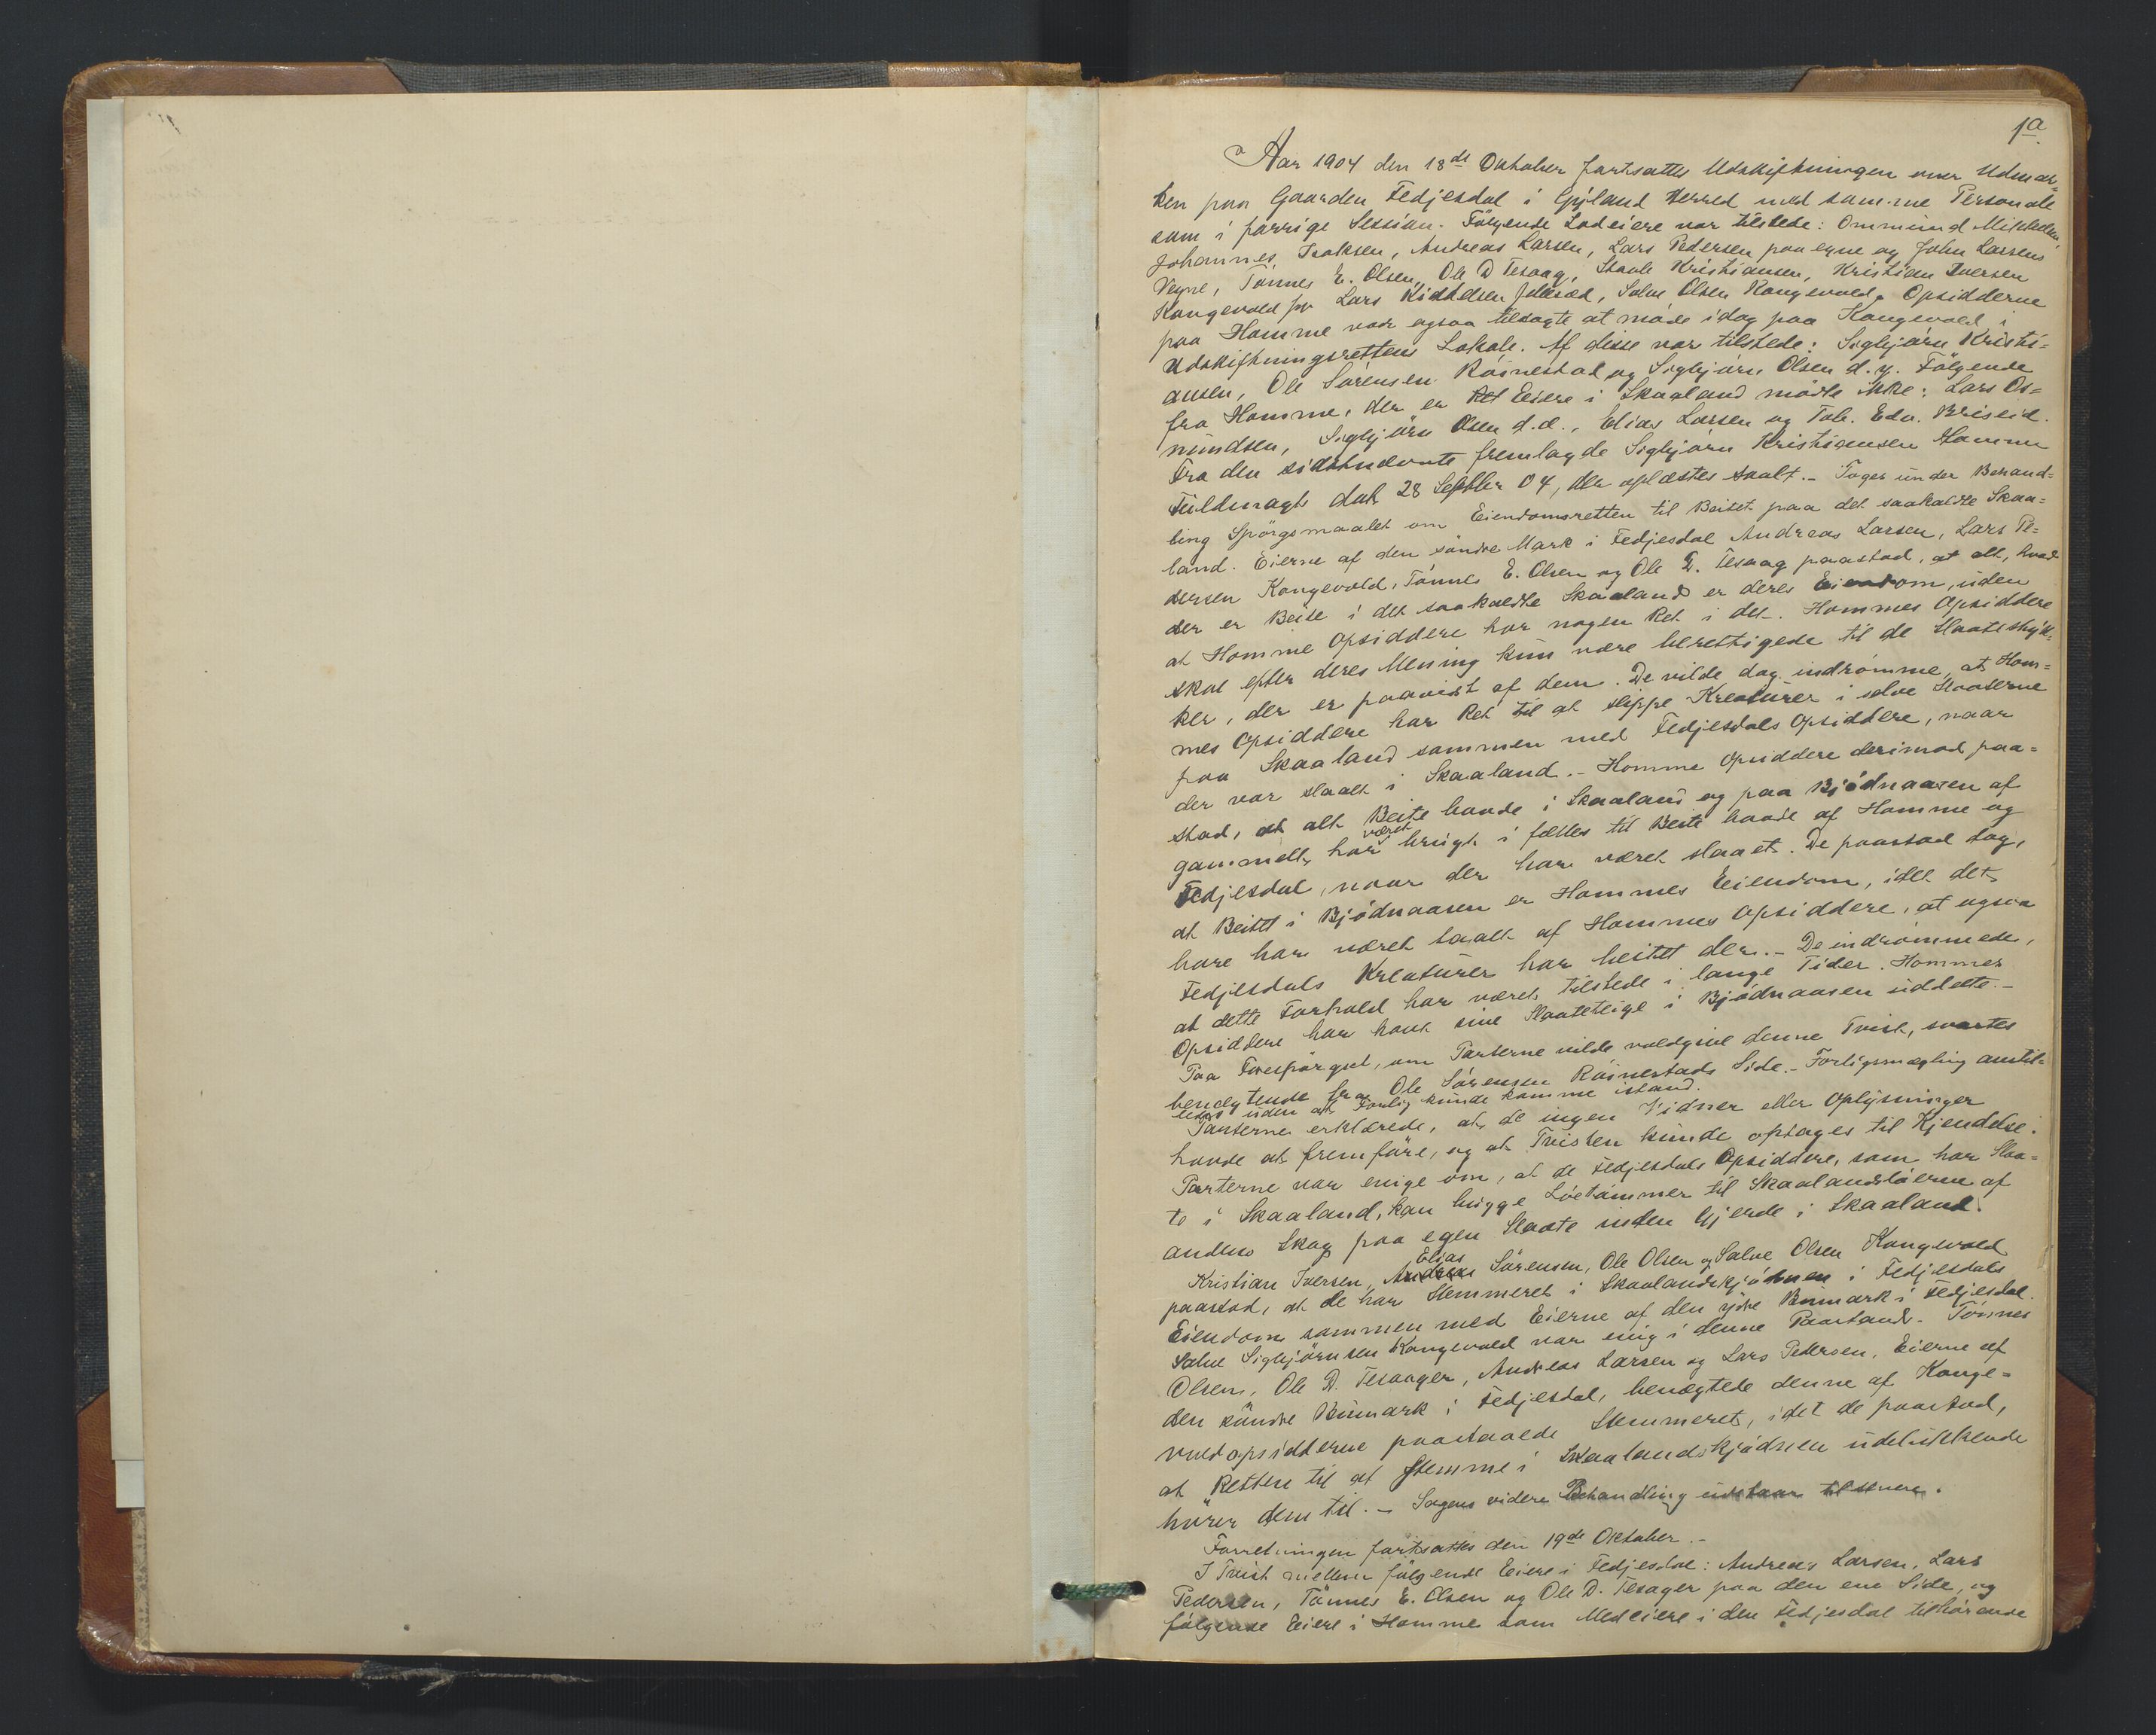 1a
Aar 1904 den 18de Oktober fortsattes Udskiftningen over Udmar=
ken paa Gaarden Fedjesdal i Gyland Herred med samme Personale
som i forrige Session. Følgende Lodeiere var tilstede: Ommund Mikkelsen,
Johannes Isaksen, Andreas Larsen, Lars Pedersen paa egne og John Larsens
Vegne, Tønnes E. Olsen, Ole D Tesaag, Staale Kristiansen, Kristian Iversen
Kongevold for Lars Kiddelsen, Salve Olsen Kongevold. Opsidderne
paa Homme var ogsaa tilsagte at møde idag paa Kongevold i
Udskiftningsrettens Lokale. Af disse var tilstede: Sigbjørn Kristi=
ansen, Ole Sørensen Røinestad og Sigbjørn Olsen d. y. Følgende
fra Homme, der er Eiere i Skaaland mødte ikke: Lars Os=
mundsen, Sigbjørn Olsen d.æ., Elias Larsen og Tob. Edv. Briseid.
Fra den sidstnævnte fremlagde Sigbjørn Kristiansen Homme
Fuldmagt dat 28 Septbr 04, der oplæstes saalt.- Toges under Behand=
ling Spørgsmaalet om Eiendomsretten til Beitet paa det saakaldte Skaa=
land. Eierne af den søndre Mark i Fedjesdal Andreas Larsen, Lars Pe=
dersen Kongevold, Tønnes E. Olsen og Ole D. Tesaag paastod, at alt, hvad
der er Beite i det saakaldte Skaaland er deres Eiendom, uden
at Homme Opsiddere har nogen Ret i det. Hommes Opsiddere
skal efter deres Mening kun være berettigede til de Slaatestyk=
ker, der er paavist af dem. De vilde dog indrømme, at Hom=
mes Opsiddere har Ret til at slippe Kreaturer i selve Slaaterne
paa Skaaland sammen med Fedjesdals Opsiddere, naar
der var slaatt i Skaaland.- Homme Opsiddere derimod paa=
stod, at alt Beite baade i Skaaland og paa Bjødnaasen af
gammelt har været brugt i fælles til Beite baade af Homme og
Fedjesdal, naar der har været slaaet. De paastod dog,
at Beitet i Bjødnaasen er Hommes Eiendom, idet det
bare har været taalt af Hommes Opsiddere, at ogsaa
Fedjesdals Kreaturer har beitet der.- De indrømmede,
at dette Forhold har været tilstede i lange Tider. Hommes
Opsiddere har havt sine Slaateteige i Bjødnaasen uddelte.-
Paa Forespørgsel, om Parterne vilde voldgive denne Tvist, svartes
benegtende fra Ole Sørensen Røinestads Side.- Forligsmægling anstil=
ledes uden at Forlig kunde komme istand.
Parterne erklærede, at de ingen Vidner eller Oplysninger
havde at fremføre, og at Tvisten kunde optages til Kjendelse.
Parterne var enige om, at de Fedjesdals Opsiddere, som har Slaa=
te i Skaaland, kan hugge Løetømmer til Skaalandsløerne af
andens Skog paa egen Slaate inden Gjerde i Skaaland.
Kristian Iversen, Elias Sørensen, Ole Olsen og Salve Olsen Kongevold
paastod, at de har Stemmeret i Skaalandskjødnen i Fedjesdals
Eiendom sammen med Eierne af den ydre Bumark i Fedjesdal.
Salve Sigbjørnsen Kongevold var enig i denne Paastand. Tønnes
Olsen, Ole D. Tesaager, Andreas Larsen og Lars Pedersen, Eierne af
den søndre Bumark i Fedjesdal, benægtede denne af Konge=
voldopsidderne paastaaede Stemmeret, idet de paastod,
at Retten til at stemme i Skaalandskjødnen udelukkende
hører dem til.- Sagens videre Behandling udstaar til senere.
Forretningen fortsattes den 19de Oktober.-
I Tvist mellem følgende Eiere i Fedjesdal: Andreas Larsen, Lars
Pedersen, Tønnes E. Olsen og Ole D. Tesager paa den ene Side, og
følgende Eiere i Homme som Medeiere i den Fedjesdal tilhørende